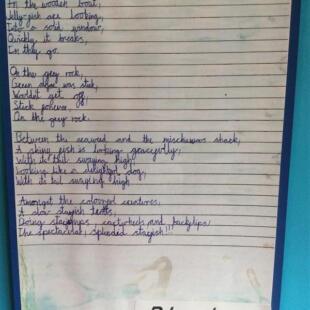 In the wooden boat,
Jelly-fish are looking,
Into a solid window,
Quickly it breaks,
In they go.
On the grey rock,
Green algae was stuk,
Wouldn't get off,
Stick forever,
On the grey rock.
Between the seaweed and the mischievous shack,
A shiny fish is looking gracefully,
With its tail swaying high,
Looking like a delighted dog,
With its tail swaying high
Amongst the coloured creatures,
A slow starfish
Doing cartwheels and backflips,
The spectacular, splended starfish!!!